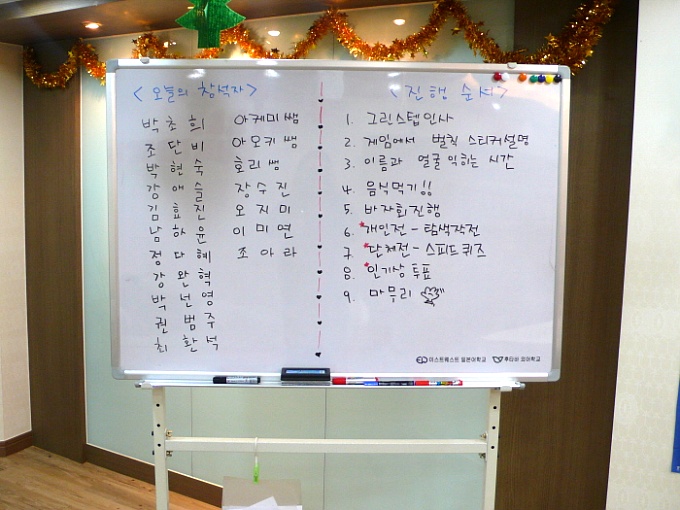 <오늘의 참석자>
박초희 아케미쌤
조단비 아오키쌤
박현숙 호리쌤
강애슬 장수진
김효진 오지미
남하윤 이미연
정다혜 조아라
강완혁
박선영
권범주
최환석
<진행순서>
1. 그린스텝인사
2. 게임에서 벌칙 스티커설명
3. 이름과 얼굴 익히는 시간
4. 음식먹기!!
5. 바자회진행
6. *개인전-탐색작전
7. *단체전-스피드퀴즈
8. *인기상투표
9. 마무리
이스트웨스트 일본어학교 후타바 외어학교